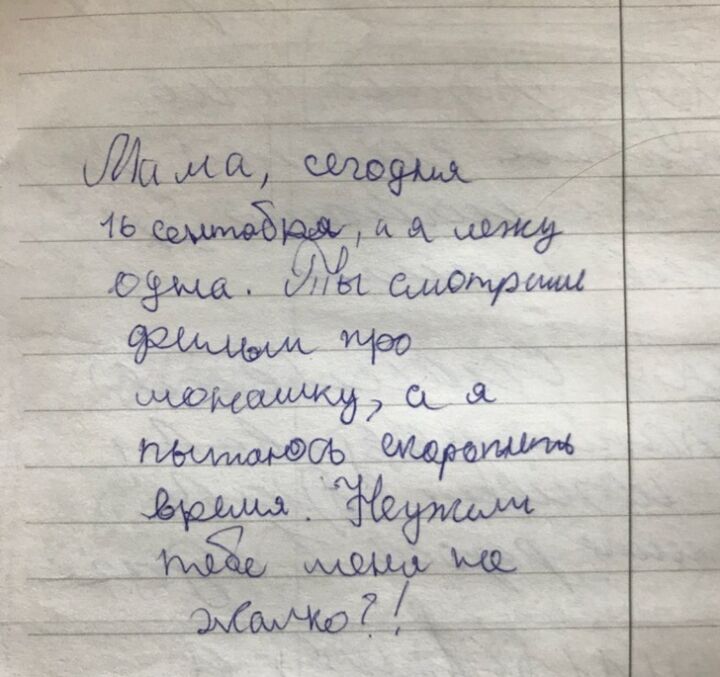 Мама, сегодня
16 сентября, а я лежу
одна. Ты смотришь
фильм про
монашку, а я
пытаюсь скоротать
время. Неужели
тебе меня не
жалко?!